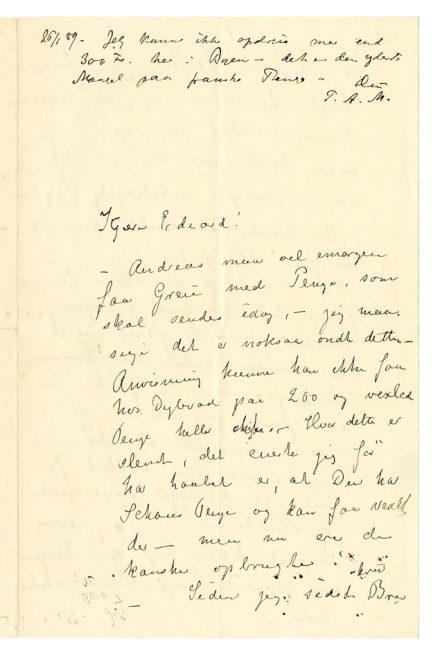 26/1 89. Jeg kunne ikke opdrive mer end
300 Fr. her i Byen – det er den yderste
Mangel paa franske Penge – Din
T. A. M.
Kjære Edvard!
– Andreas maa vel imorgen
faa Greie med Penge, som
skal sendes idag, – jeg maa
sige det er noksaa ondt dette –
Anvisning kunne han ikke faa
hos Dybwad paa 200 og vexled
Penge heller ikke. – Hvor dette er
slemt, det eneste jeg før
har haabet er, at Du har
Schous Penge og kan faa vexlt
der – men nu ere de
kanske opbrugte!
Siden jeg sidste Brev skrev